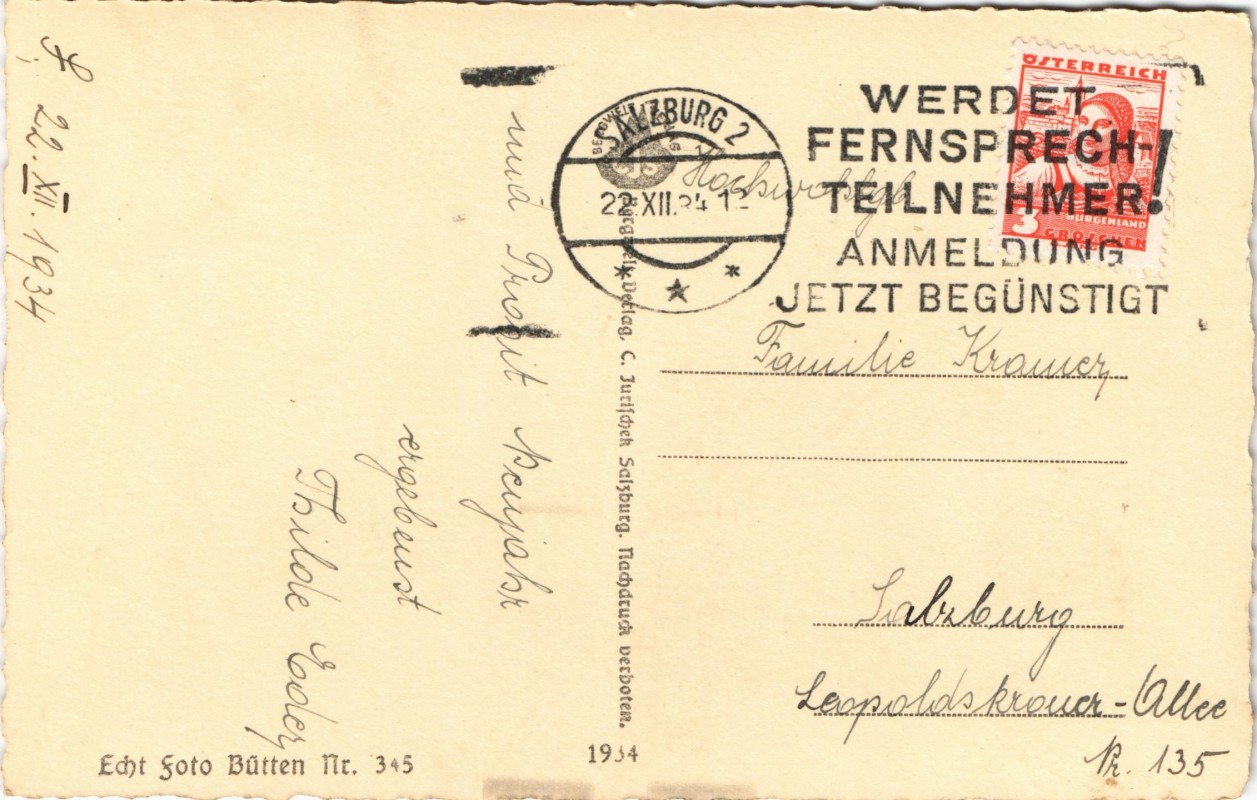 S. 22. XII. 1934
und Prosit Neujahr
ergebenst
Thilde Eder
Echt Foto Bütten Nr. 345
Bergwelt-Verlag, C. Jurischek Salzburg. Nachdruck verboten.
1934
SALZBURG 2
22.XII.34
WERDET
FERNSPRECH-
TEILNEHMER!
ANMELDUNG
JETZT BEGÜNSTIGT
ÖSTERREICH
BURGENLAND
3 GROSCHEN
Familie Kramer
Salzburg
Leopoldskroner-Allee
Nr. 135